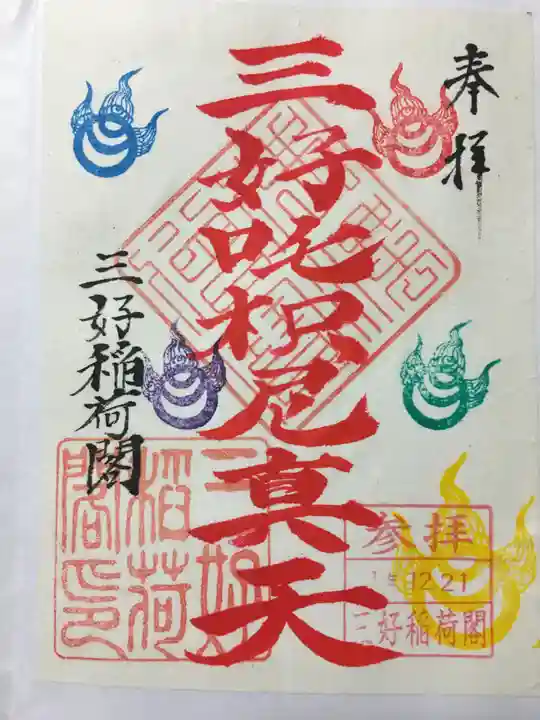 奉拝
三好吒枳尼真天
三好稲荷閣
三好稲荷閣印
参拝
12.21
三好稲荷閣